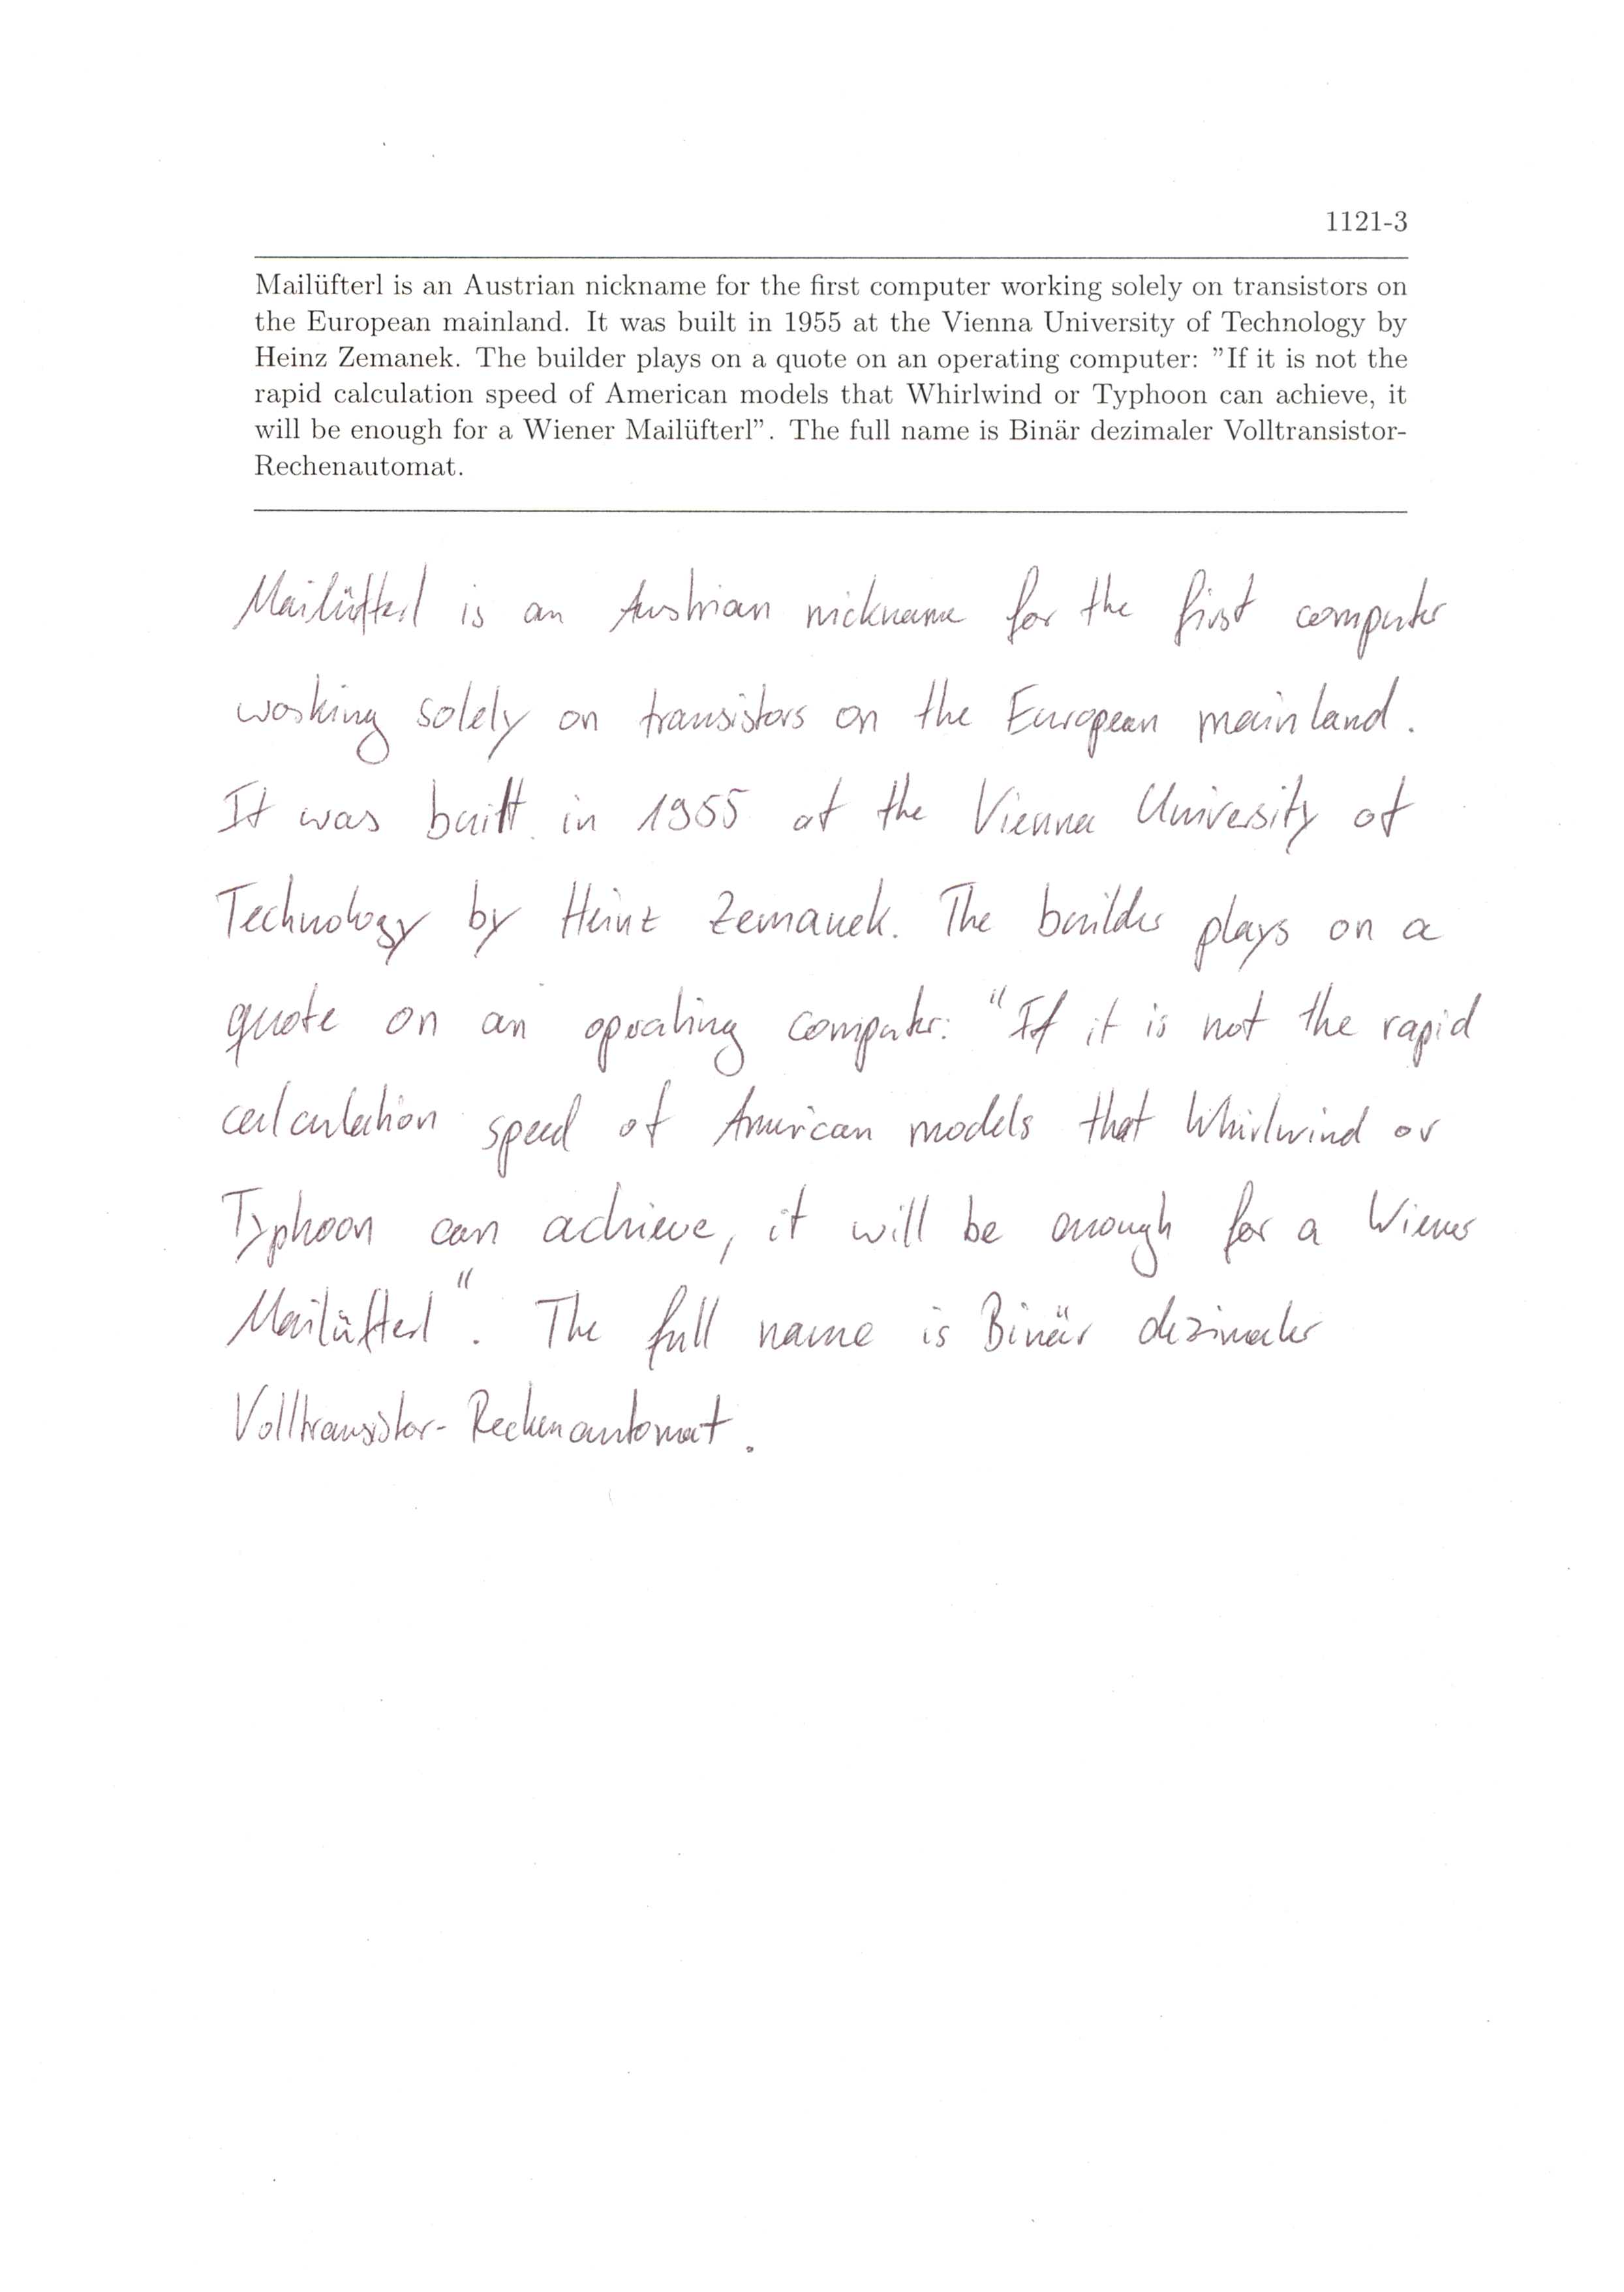 1121-3
Mailüfterl is an Austrian nickname for the first computer working solely on transistors on
the European mainland. It was built in 1955 at the Vienna University of Technology by
Heinz Zemanek. The builder plays on a quote on an operating computer: ”If it is not the
rapid calculation speed of American models that Whirlwind or Typhoon can achieve, it
will be enough for a Wiener Mailüfterl”. The full name is Binär dezimaler Volltransistor-
Rechenautomat.
Mailüfterl is an Austrian nickname for the first computer
working solely on transistors on the European mainland.
It was built in 1955 at the Vienna University of
Technology by Heinz Zemanek. The builder plays on a
quote on an operating computer: "If it is not the rapid
calculation speed of American models that Whirlwind or
Typhoon can achieve, it will be enough for a Wiener
Mailüfterl". The full name is Binär dezimaler
Volltransistor-Rechenautomat.